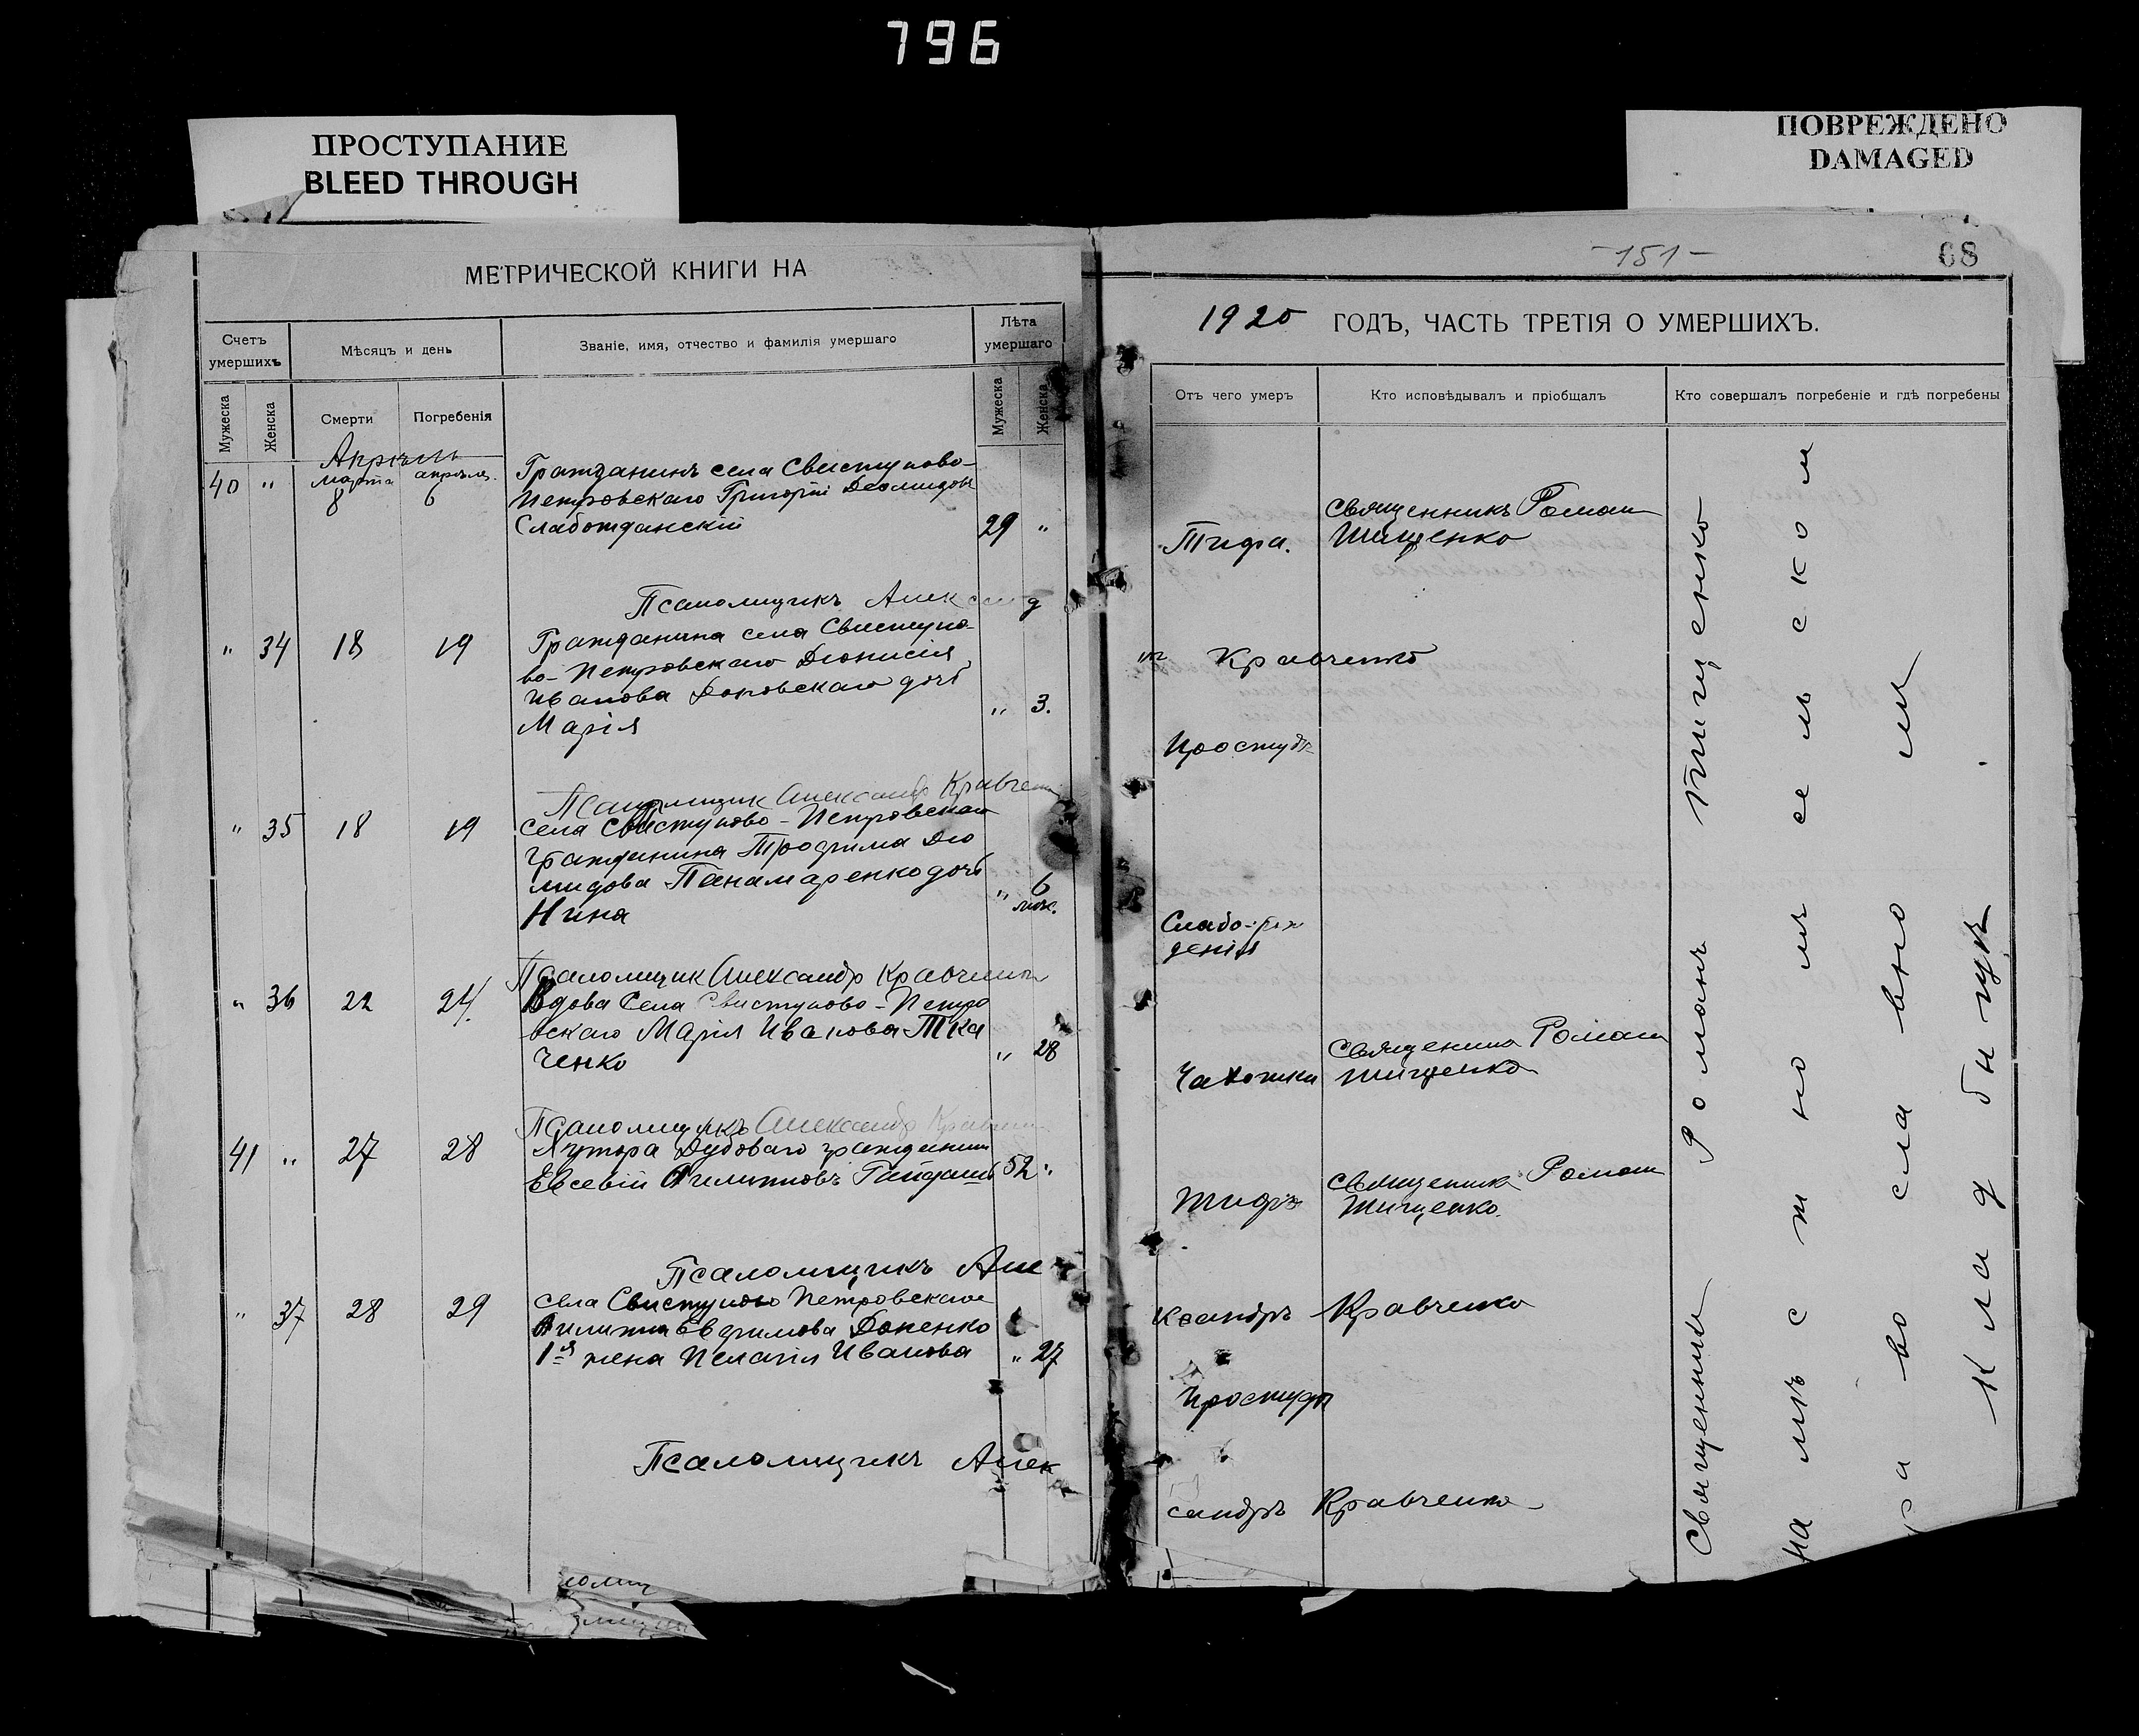 796
ПРОСТУПАНИЕ
BLEED THROUGH
ПОВРЕЖДЕНО
DAMAGED
МЕТРИЧЕСКОЙ КНИГИ НА
Счетъ умершихъ
Мѣсяцъ и день
Званіе, имя, отчество и фамилія умершаго
Лѣта умершаго
Мужеска
Женска
Смерти
Погребенія
Мужеска
Женска
Апрѣль
40 " марта 8 апрѣля 6
Гражданинъ села Свистуново-
Петровскаго Григорій Деомидовъ
Слабожданскій 29 "
Псаломщикъ Александ
" 34 18 19
Гражданина села Свистуно-
во-Петровскаго Діонисія
Иванова дочь
Марія " 3.
Псаломщик Александр Кравчен
" 35 18 19
села Свистуново-Петровскаго
гражданина Трофима Дio
мидова Панамаренко дочь
Нина " 6 мѣс.
Псаломщик Александр Кравченко
" 36 22 24.
Вдова Села Свистуново-Петро
вскаго Марія Иванова Тка
ченко " 28
Псаломщикъ Александр Кравченко
41 " 27 28
Хутора Дубоваго гражданин
Евсевій Филипповъ 52 "
Псаломщикъ Але
" 37 28 29
села Свистуново Петровскаго
Филиппа Ефимова Доненко
1я жена Пелагія Иванова " 27
Псаломщикъ Алек
-151-
68
1920 ГОДЪ, ЧАСТЬ ТРЕТІЯ О УМЕРШИХЪ.
Отъ чего умеръ
Кто исповѣдывалъ и пріобщалъ
Кто совершалъ погребеніе и гдѣ погребены
Тифа.
Священникъ Роман
Тищенко
Кравченко
Простуды
Слабо-рож
денія
Чахотки
Священник Роман
Тищенко
Тифъ
Священник Роман
Тищенко.
ксандръ Кравченко
Простуды
сандръ Кравченко
Священник Романъ Тищенко
на мѣстномъ сельском
православном
кладбищѣ.